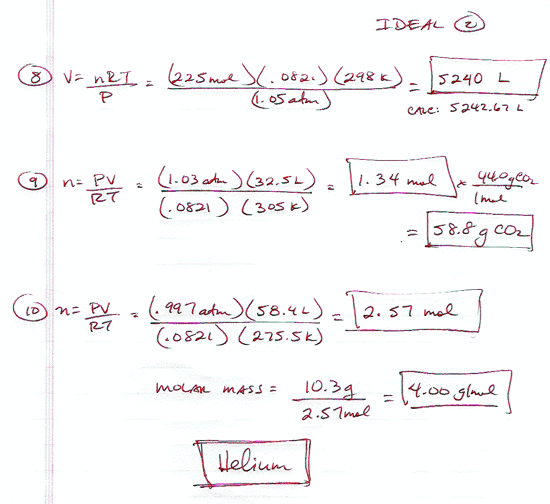 IDEAL ②
⑧ V = nRT / P = (225 mol)(.0821)(298 K) / (1.05 atm) = 5240 L
CALC: 5242.67 L
⑨ n = PV / RT = (1.03 atm)(32.5 L) / (.0821)(305 K) = 1.34 mol * 44.0 g CO2 / 1 mol
= 58.8 g CO2
⑩ n = PV / RT = (.997 atm)(58.4 L) / (.0821)(275.5 K) = 2.57 mol
MOLAR MASS = 10.3 g / 2.57 mol = 4.00 g/mol
Helium